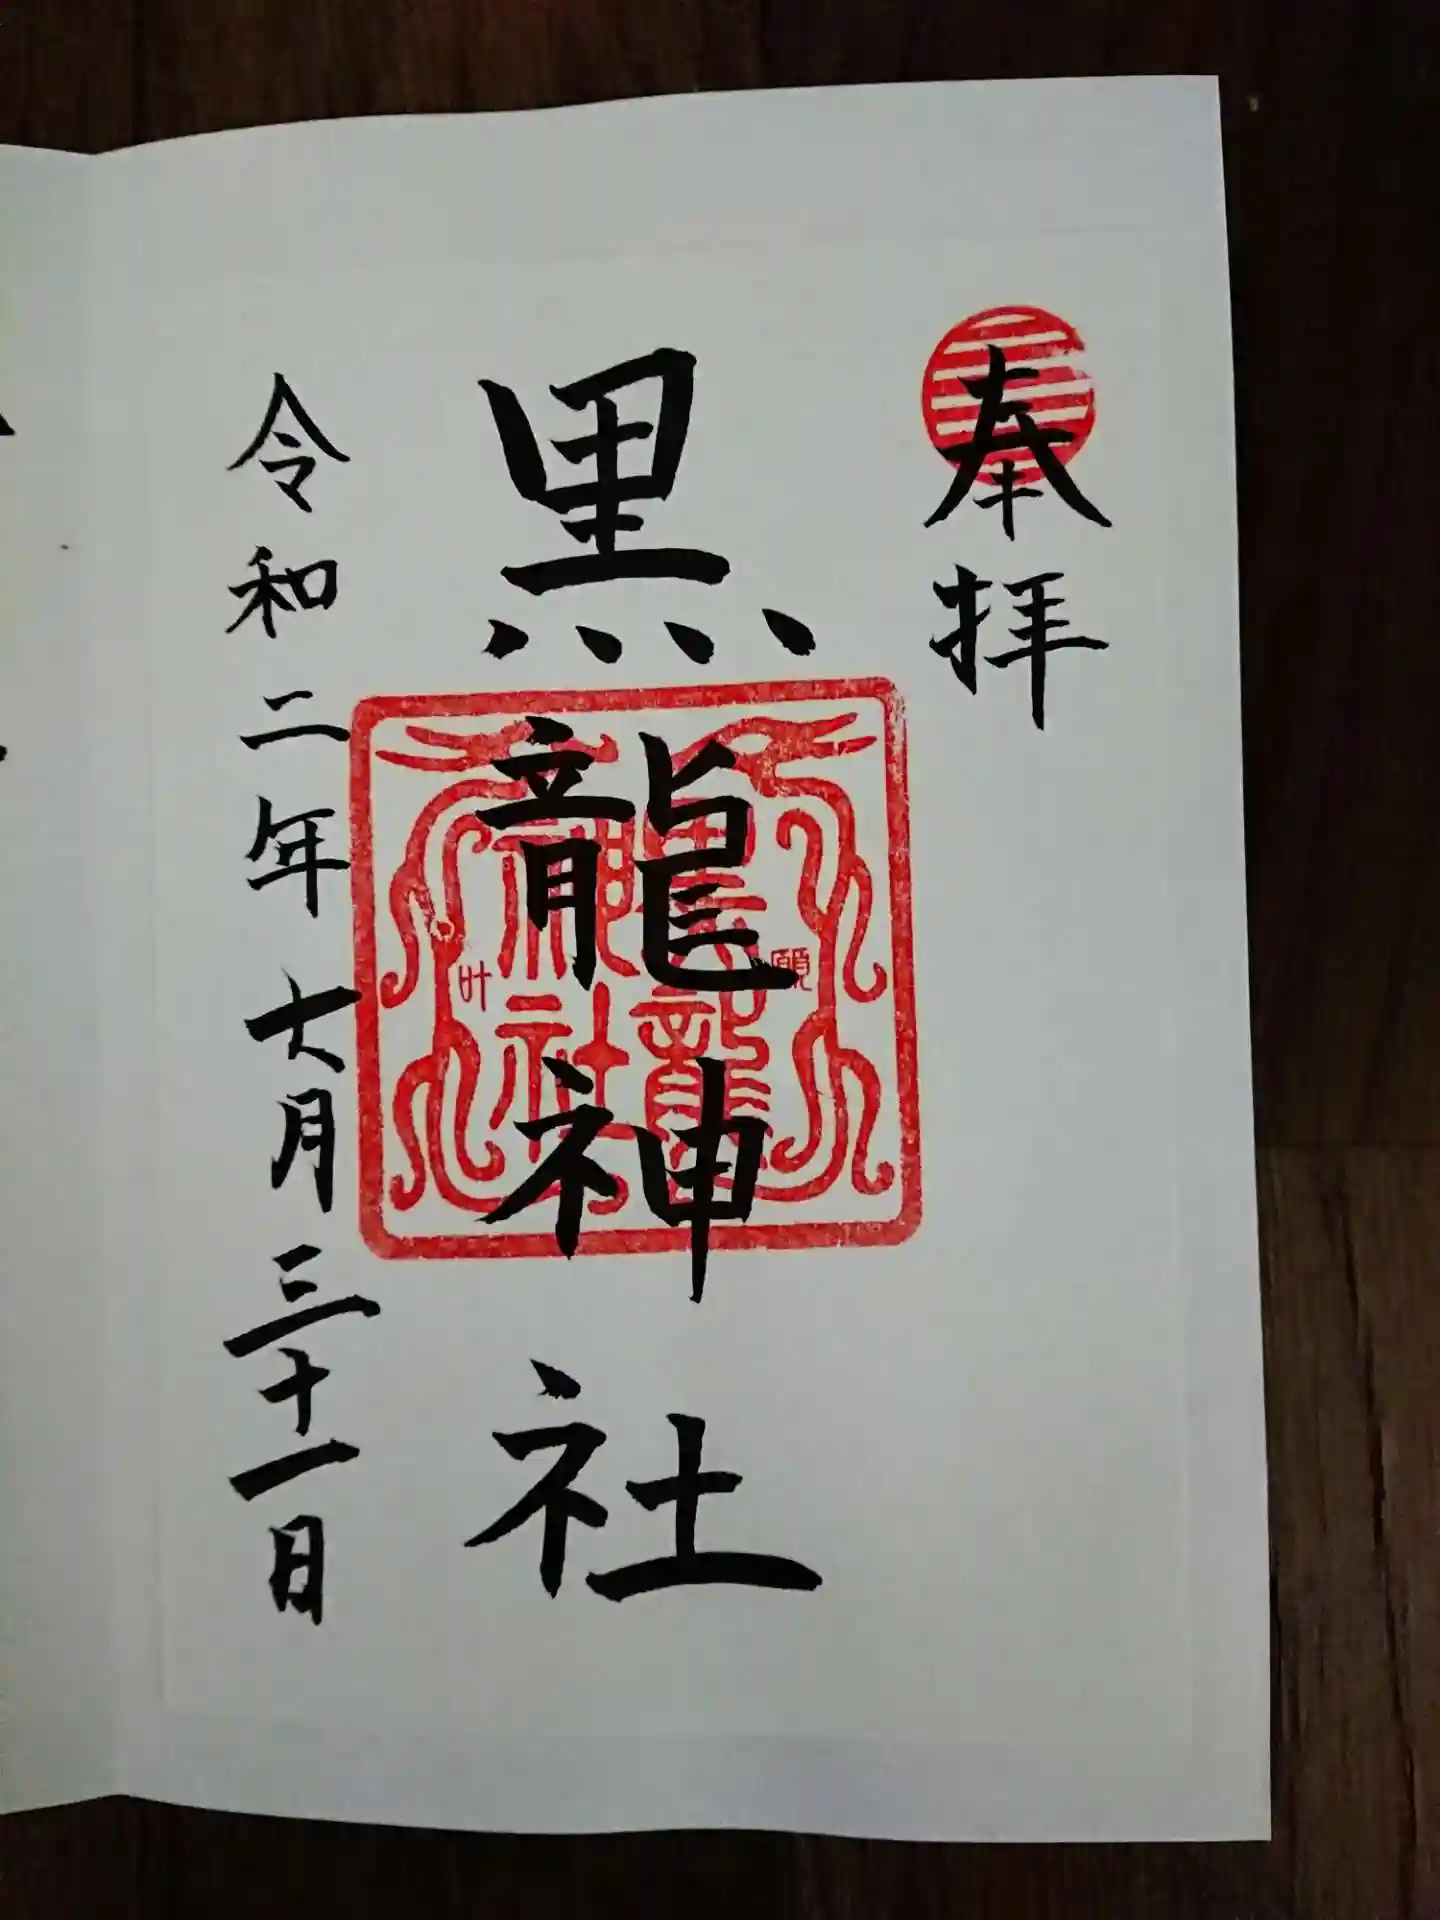 奉拝
黒龍神社
黒龍
神社
願
叶
令和二年七月三十一日